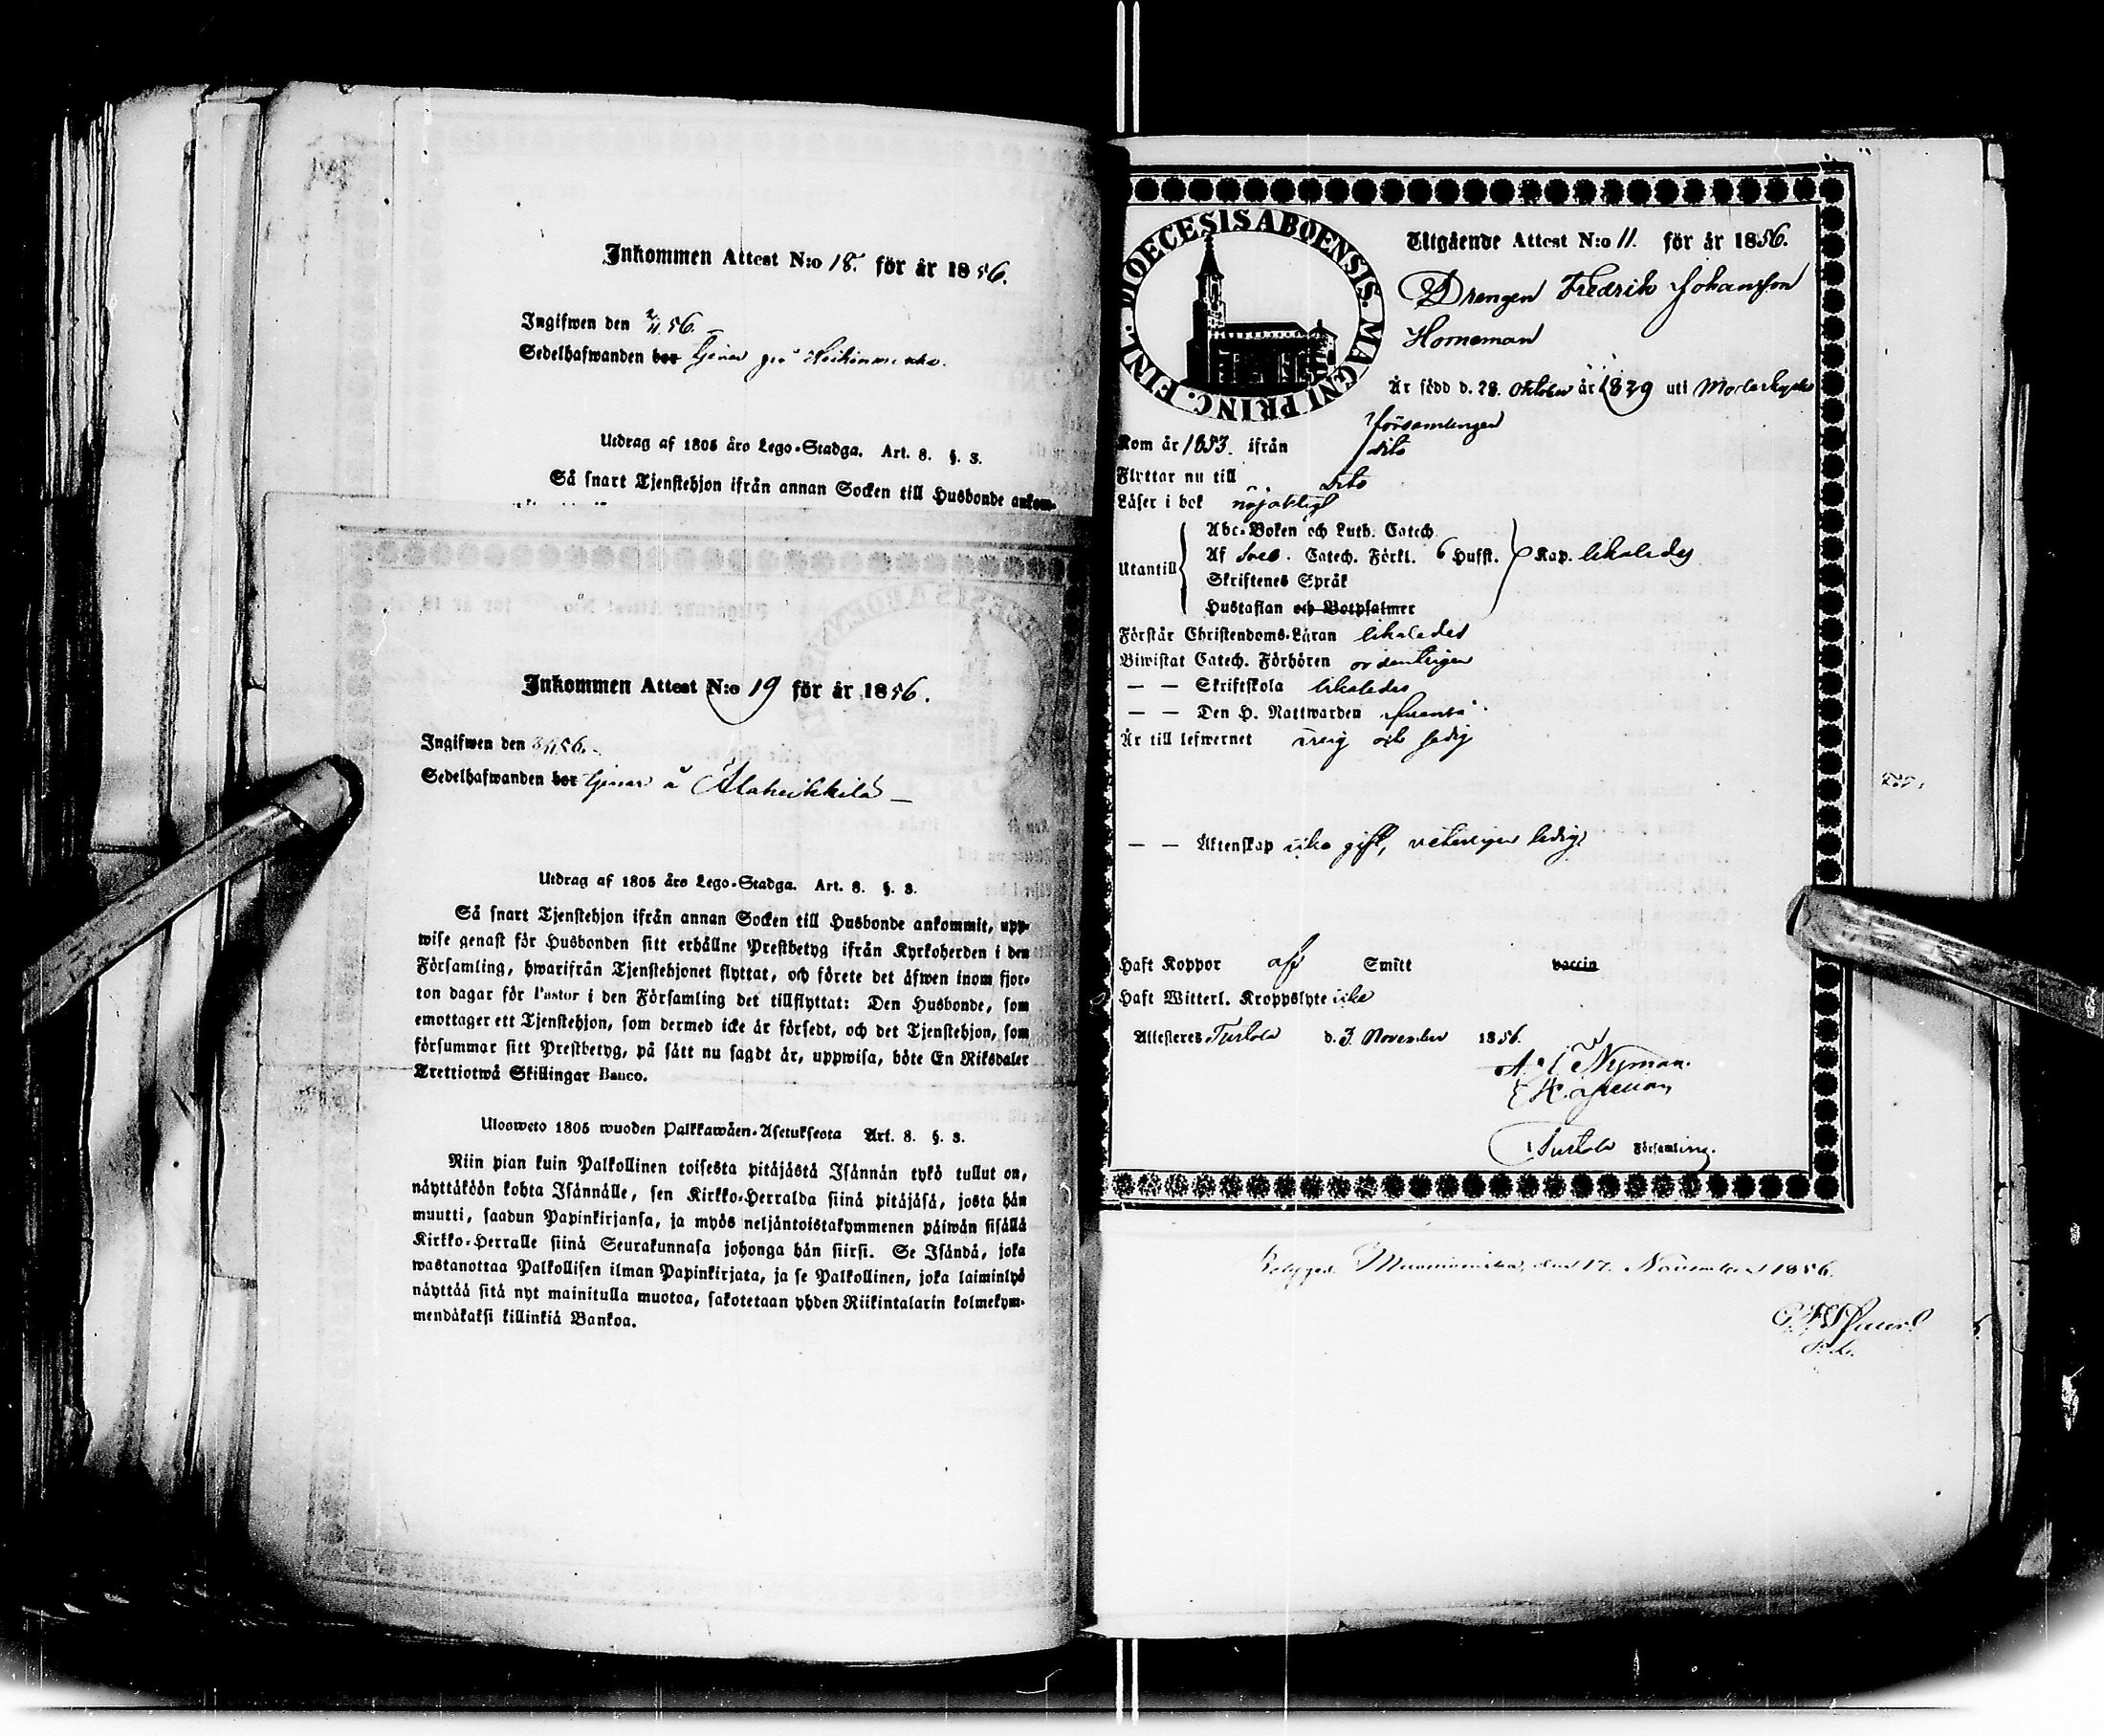 Inkommen Attest N:o 18. för år 1856.
Ingifwen den 2/11 56.
Sedelhafwanden bor tjenar på
Utdrag af 1805 års Lego-Stadga. Art. 8. §. 3.
Så snart Tjenstehjon ifrån annan Socken till Husbonde ankom-
Inkommen Attest N:o 19 för år 1856.
Ingifwen den 56.
Sedelhafwanden bor tjenar å Alaheikkilä
Utdrag af 1805 års Lego-Stadga. Art. 8. §. 3.
Så snart Tjenstehjon ifrån annan Socken till Husbonde ankommit, upp-
wise genast för Husbonden sitt erhållne Prestbetyg ifrån Kyrkoherden i den
Församling, hwarifrån Tjenstehjonet flyttat, och förete det äfwen inom fjor-
ton dagar för Pastor i den Församling det tillflyttat: Den Husbonde, som
emottager ett Tjenstehjon, som dermed icke är försedt, och det Tjenstehjon, som
försummar sitt Prestbetyg, på sätt nu sagdt är, uppwisa, böte En Riksdaler
Trettiotwå Skillingar Banco.
Ulosweto 1805 wuoden Palkkawäen-Asetuksesta Art. 8. §. 3.
Niin pian kuin Palkollinen toisesta pitäjästä Isännän tykö tullut on,
näyttäköön kohta Isännälle, sen Kirkko-Herralda siinä pitäjäsä, josta hän
muutti, saadun Papinkirjansa, ja myös neljäntoistakymmenen päiwän sisällä
Kirkko-Herralle siinä Seurakunnasa johonga hän siirsi. Se Isändä, joka
wastanottaa Palkollisen ilman Papinkirjata, ja se Palkollinen, joka laiminlyö
näyttää sitä nyt mainitulla muotoa, sakotetaan yhden Riikintalarin kolmekym-
mendäkaksi killinkiä Bankoa.
FINL. DIOECESIS ABOENSIS. MAGNI PRINC.
Utgående Attest N:o 11. för år 1856.
Drengen Fredrik Johansson
Horneman
Är född d. 28. Oktober år 1829 uti
församlingen
Kom år 1853. ifrån dito
Flyttar nu till dito
Läser i bok nöjaktigt
Utantill
Abc-Boken och Luth. Catech.
Af Sveb. Catech. Förkl. 6 Hufst. Kap. likaledes
Skriftenes Språk
Hustaflan och Botpsalmer
Förstår Christendoms-Läran likaledes
Biwistat Catech. Förhören ordentligen
— — Skriftskola likaledes
— — Den H. Nattwarden
Är till lefwernet ärlig och sedig
— — Äktenskap icke gift, veterligen ledig
Haft Koppor af Smitt vaccin
Haft Witterl. Kroppslyte icke
Attesteras Turtola d. 3. November 1856.
Nyman.
i Turtola Församling.
den 17. November 1856.